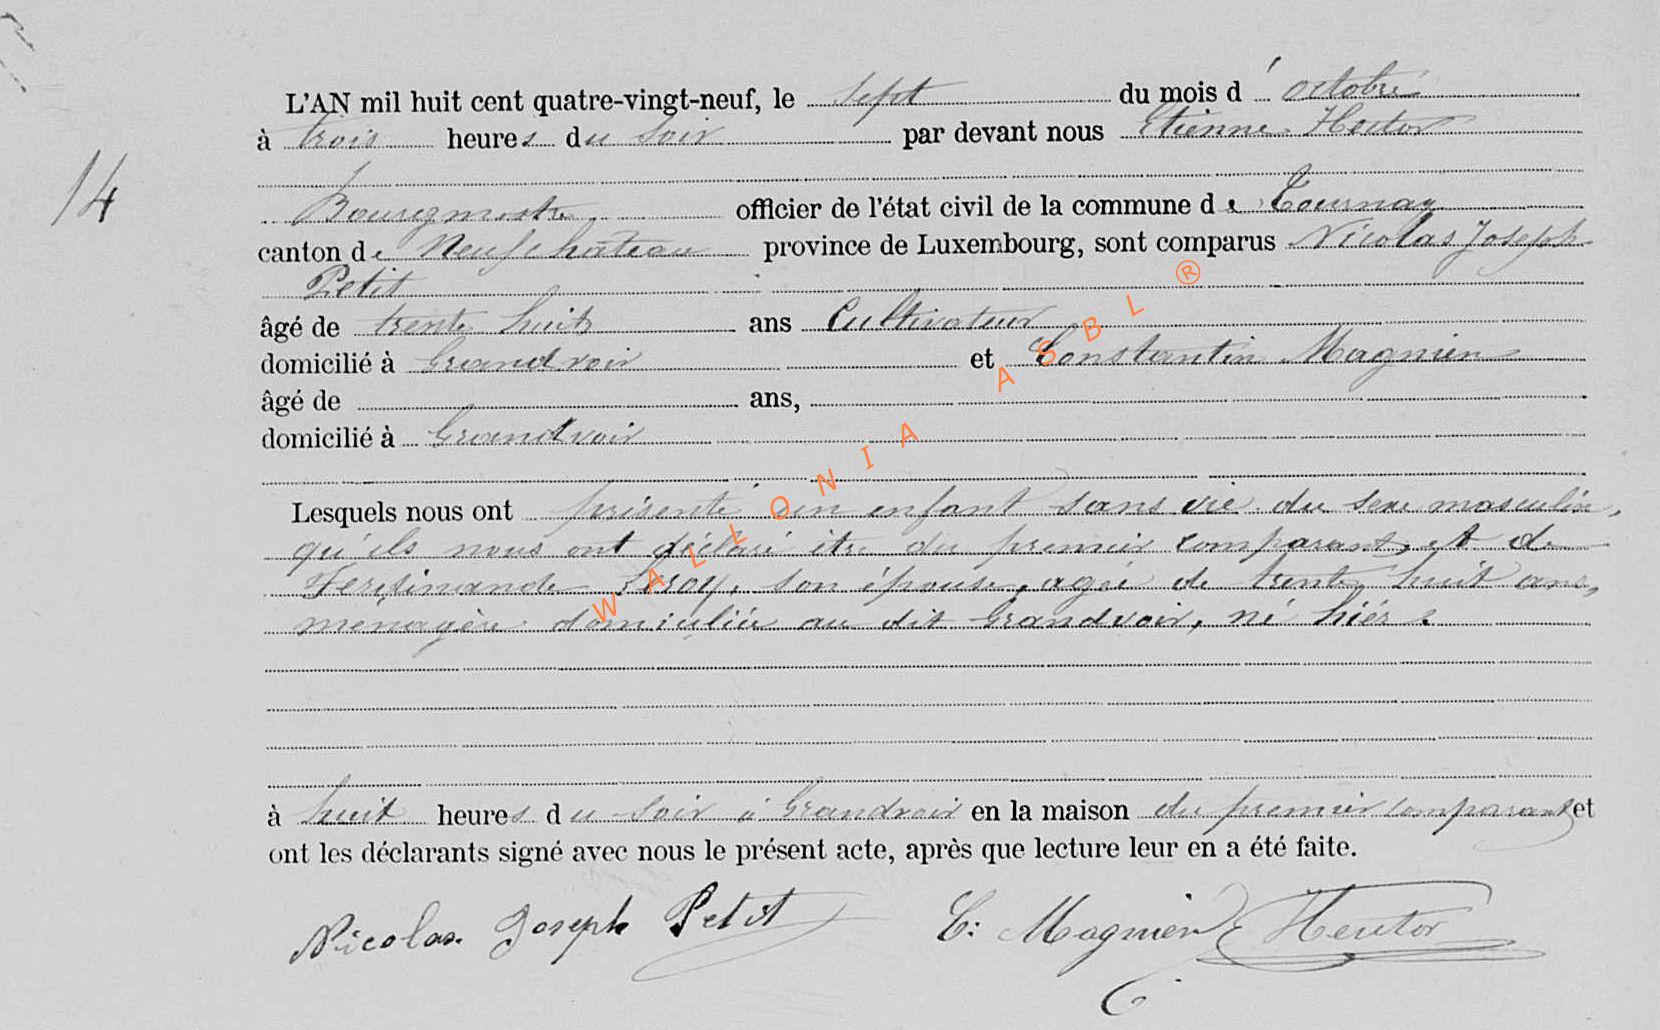 L'AN mil huit cent quatre-vingt-neuf, le sept du mois d'octobre
à trois heures du soir par devant nous Etienne Heutor
14
Bourgmestre officier de l'état civil de la commune de Tournay
canton de Neufchâteau province de Luxembourg, sont comparus Nicolas Joseph
Petit
âgé de trente huit ans Cultivateur
domicilié à Grandvoir et Constantin Magnien
âgé de ans,
domicilié à Grandvoir
Lesquels nous ont présenté un enfant sans vie du sexe masculin,
qu'ils nous ont déclaré être du premier comparant, et de
Ferdinande Leroy, son épouse, agée de trente huit ans,
menagère domiciliée au dit Grandvoir, né hiér
à huit heures du soir à Grandvoir en la maison du premier comparant et
ont les déclarants signé avec nous le présent acte, après que lecture leur en a été faite.
Nicolas Joseph Petit C: Magnien Heutor
WALLONIA ASBL ®